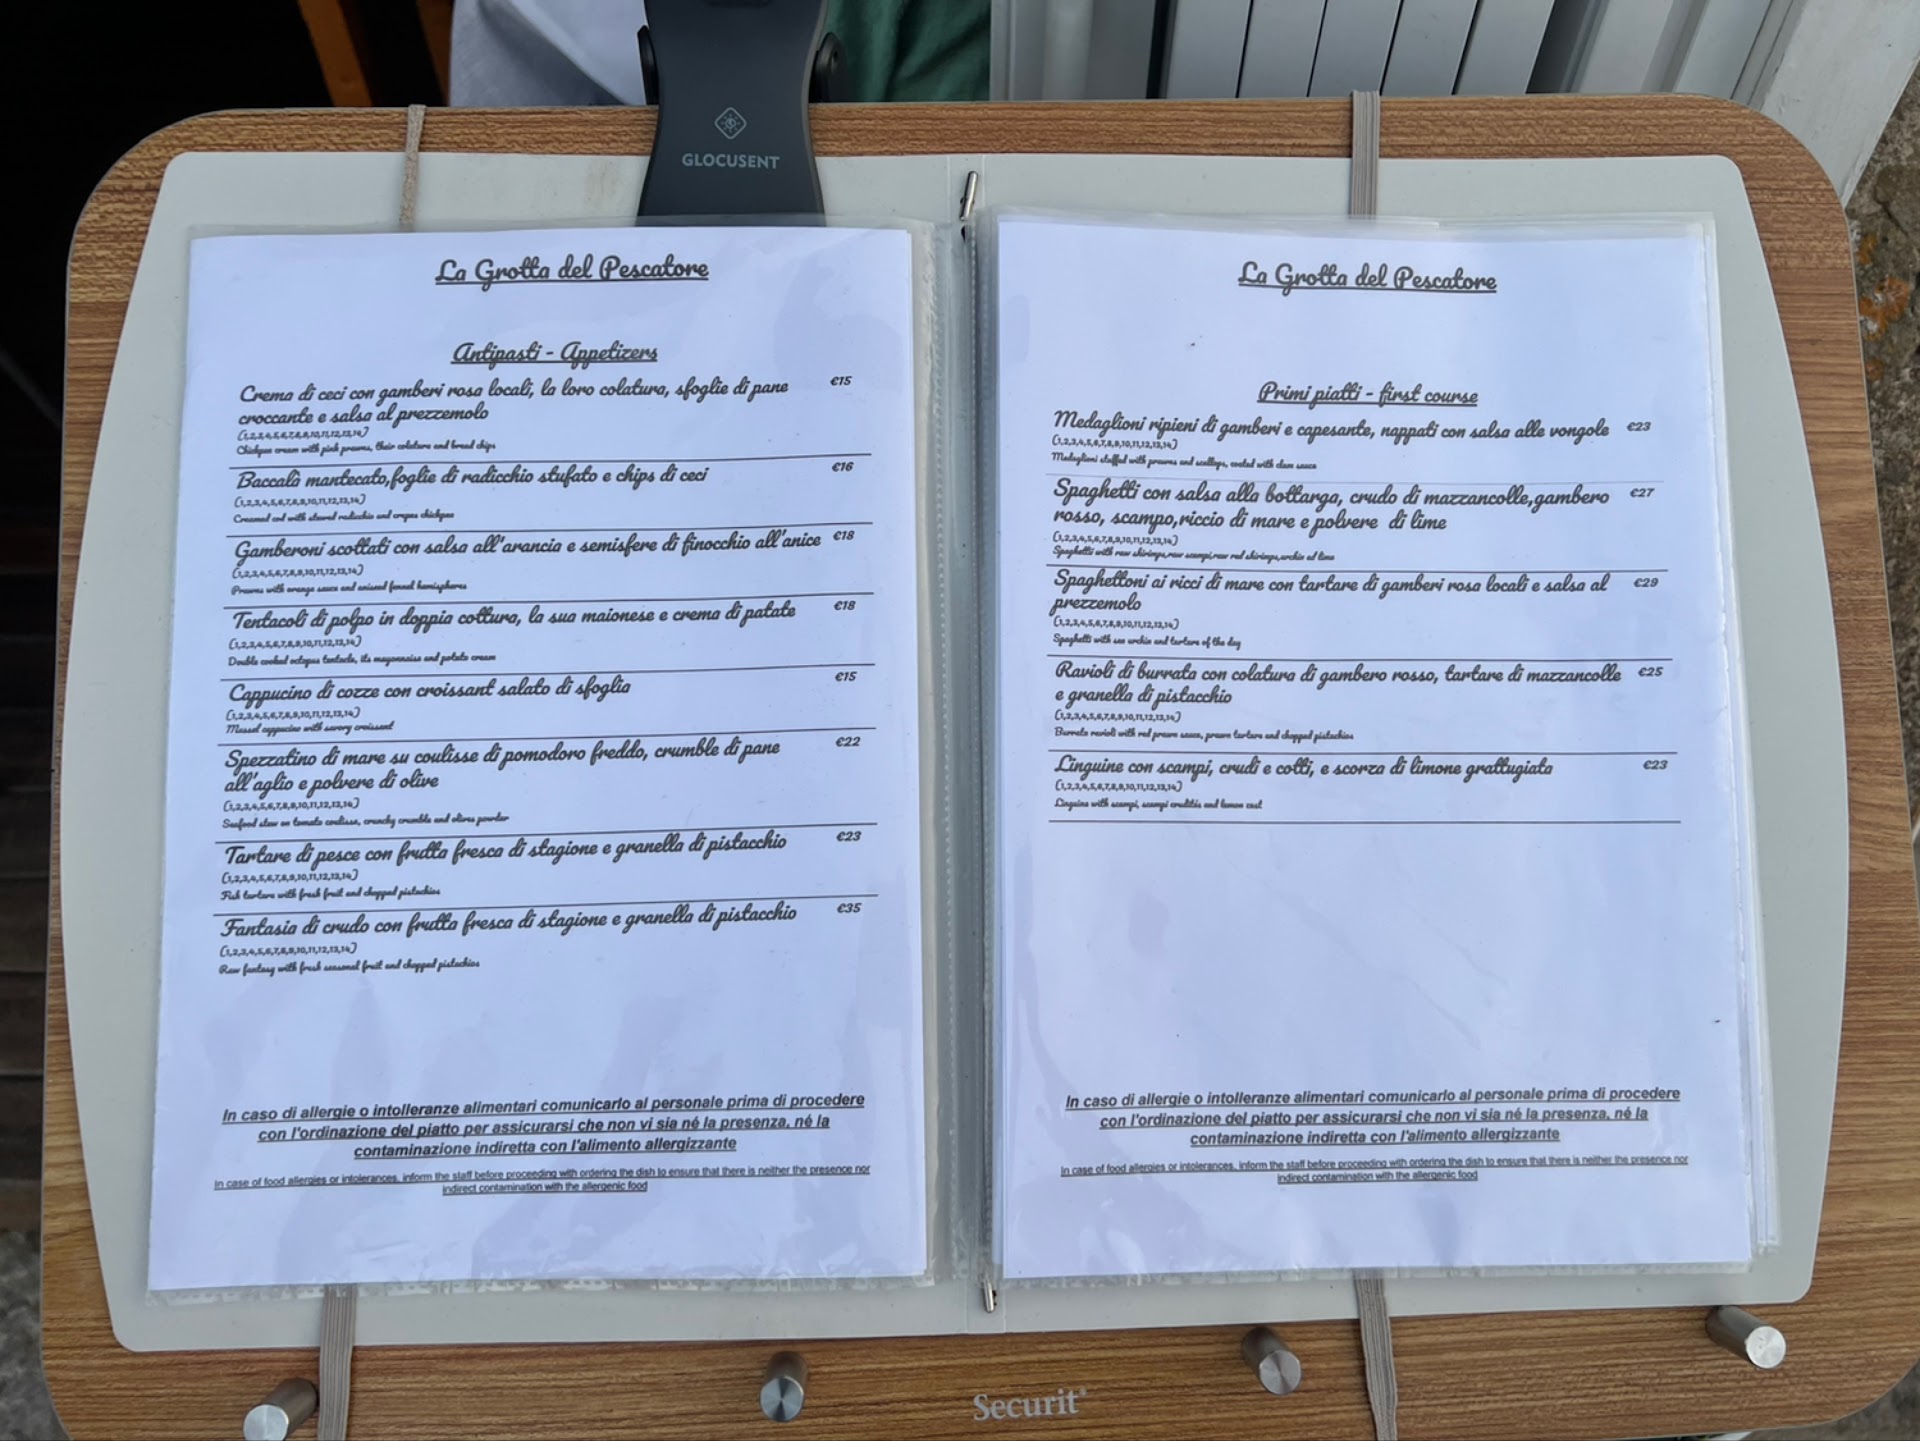 GLOCUSENT
La Grotta del Pescatore
Antipasti - Appetizers
Crema di ceci con gamberi rosa locali, la loro colatura, sfoglie di pane €15
croccante e salsa al prezzemolo
(1,2,3,4,5,6,7,8,9,10,11,12,13,14)
Chickpea cream with pink prawns, their colatura and bread chips
Baccalà mantecato,foglie di radicchio stufato e chips di ceci €16
(1,2,3,4,5,6,7,8,9,10,11,12,13,14)
Creamed cod with stewed radicchio and crepes chickpea
Gamberoni scottati con salsa all'arancia e semisfere di finocchio all'anice €18
(1,2,3,4,5,6,7,8,9,10,11,12,13,14)
Prawns with orange sauce and aniseed fennel hemispheres
Tentacoli di polpo in doppia cottura, la sua maionese e crema di patate €18
(1,2,3,4,5,6,7,8,9,10,11,12,13,14)
Double cooked octopus tentacle, its mayonnaise and potato cream
Cappucino di cozze con croissant salato di sfoglia €15
(1,2,3,4,5,6,7,8,9,10,11,12,13,14)
Mussel cappucino with savory croissant
Spezzatino di mare su coulisse di pomodoro freddo, crumble di pane €22
all'aglio e polvere di olive
(1,2,3,4,5,6,7,8,9,10,11,12,13,14)
Seafood stew on tomato coulisse, crunchy crumble and olives powder
Tartare di pesce con frutta fresca di stagione e granella di pistacchio €23
(1,2,3,4,5,6,7,8,9,10,11,12,13,14)
Fish tartare with fresh fruit and chopped pistachios
Fantasia di crudo con frutta fresca di stagione e granella di pistacchio €35
(1,2,3,4,5,6,7,8,9,10,11,12,13,14)
Raw fantasy with fresh seasonal fruit and chopped pistachios
In caso di allergie o intolleranze alimentari comunicarlo al personale prima di procedere
con l'ordinazione del piatto per assicurarsi che non vi sia né la presenza, né la
contaminazione indiretta con l'alimento allergizzante
In case of food allergies or intolerances, inform the staff before proceeding with ordering the dish to ensure that there is neither the presence nor
indirect contamination with the allergenic food
La Grotta del Pescatore
Primi piatti - first course
Medaglioni ripieni di gamberi e capesante, nappati con salsa alle vongole €23
(1,2,3,4,5,6,7,8,9,10,11,12,13,14)
Medaglioni stuffed with prawns and scallops, coated with clam sauce
Spaghetti con salsa alla bottarga, crudo di mazzancolle,gambero €27
rosso, scampo,riccio di mare e polvere di lime
(1,2,3,4,5,6,7,8,9,10,11,12,13,14)
Spaghetti with raw shirimps,raw scampi,raw red shirimps,urchin ad lime
Spaghettoni ai ricci di mare con tartare di gamberi rosa locali e salsa al €29
prezzemolo
(1,2,3,4,5,6,7,8,9,10,11,12,13,14)
Spaghetti with sea urchin and tartare of the day
Ravioli di burrata con colatura di gambero rosso, tartare di mazzancolle €25
e granella di pistacchio
(1,2,3,4,5,6,7,8,9,10,11,12,13,14)
Burrata ravioli with red prawn sauce, prawn tartare and chopped pistachios
Linguine con scampi, crudi e cotti, e scorza di limone grattugiata €23
(1,2,3,4,5,6,7,8,9,10,11,12,13,14)
Linguine with scampi, scampi crudités and lemon zest
In caso di allergie o intolleranze alimentari comunicarlo al personale prima di procedere
con l'ordinazione del piatto per assicurarsi che non vi sia né la presenza, né la
contaminazione indiretta con l'alimento allergizzante
In case of food allergies or intolerances, inform the staff before proceeding with ordering the dish to ensure that there is neither the presence nor
indirect contamination with the allergenic food
Securit®